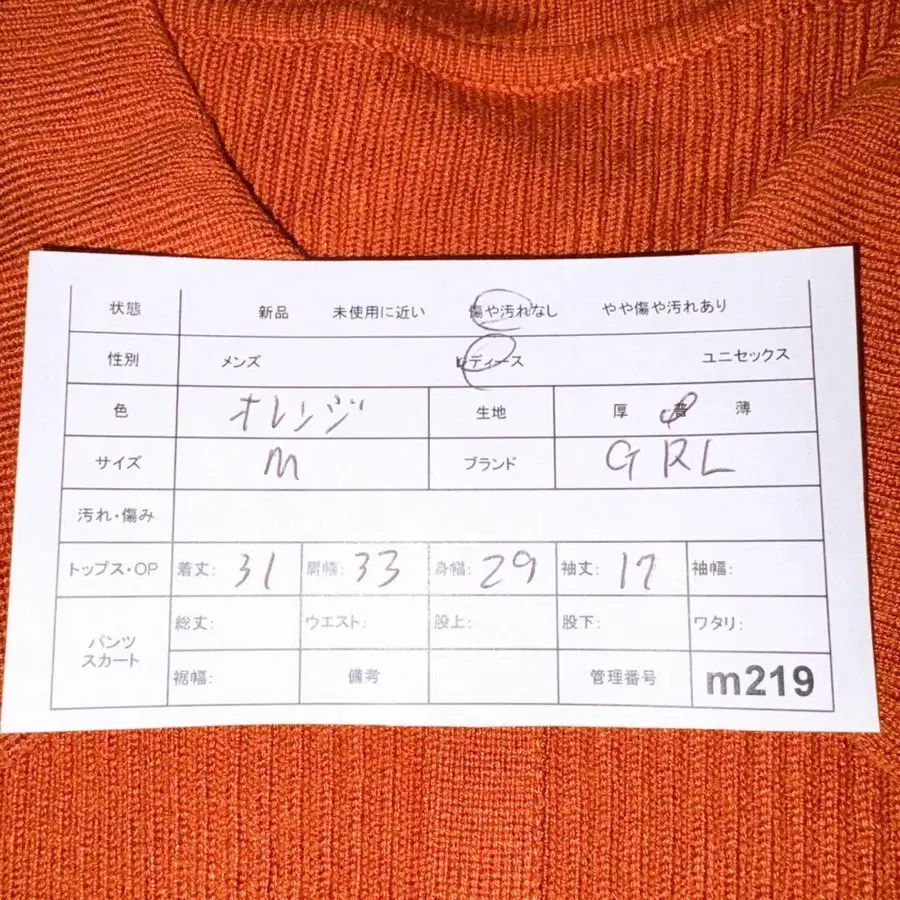 状態 新品 未使用に近い 傷や汚れなし やや傷や汚れあり
性別 メンズ レディース ユニセックス
色 オレンジ 生地 厚 普 薄
サイズ M ブランド GRL
汚れ・傷み
トップス・OP 着丈: 31 肩幅: 33 身幅: 29 袖丈: 17 袖幅:
パンツ
スカート
総丈: ウエスト: 股上: 股下: ワタリ:
裾幅: 備考 管理番号 m219